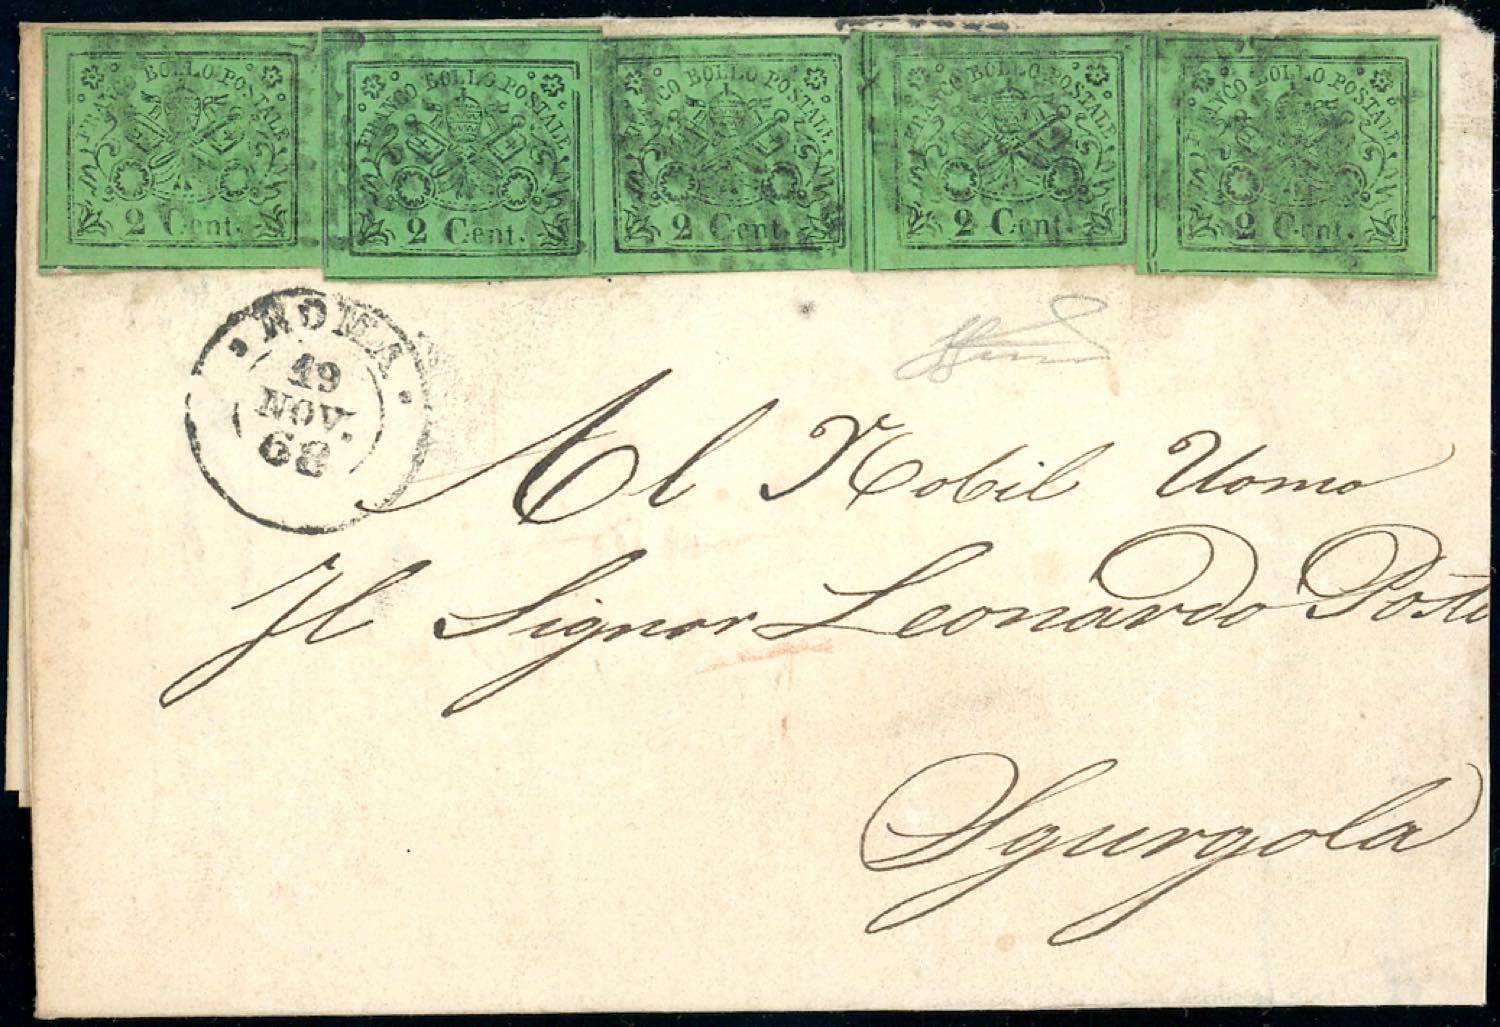 FRANCO BOLLO POSTALE
2 Cent.
FRANCO BOLLO POSTALE
2 Cent.
FRANCO BOLLO POSTALE
2 Cent.
FRANCO BOLLO POSTALE
2 Cent.
FRANCO BOLLO POSTALE
2 Cent.
ROMA
19
NOV.
68
Al Nobil Uomo
Il Signor Leonardo Posti
Sgurgola